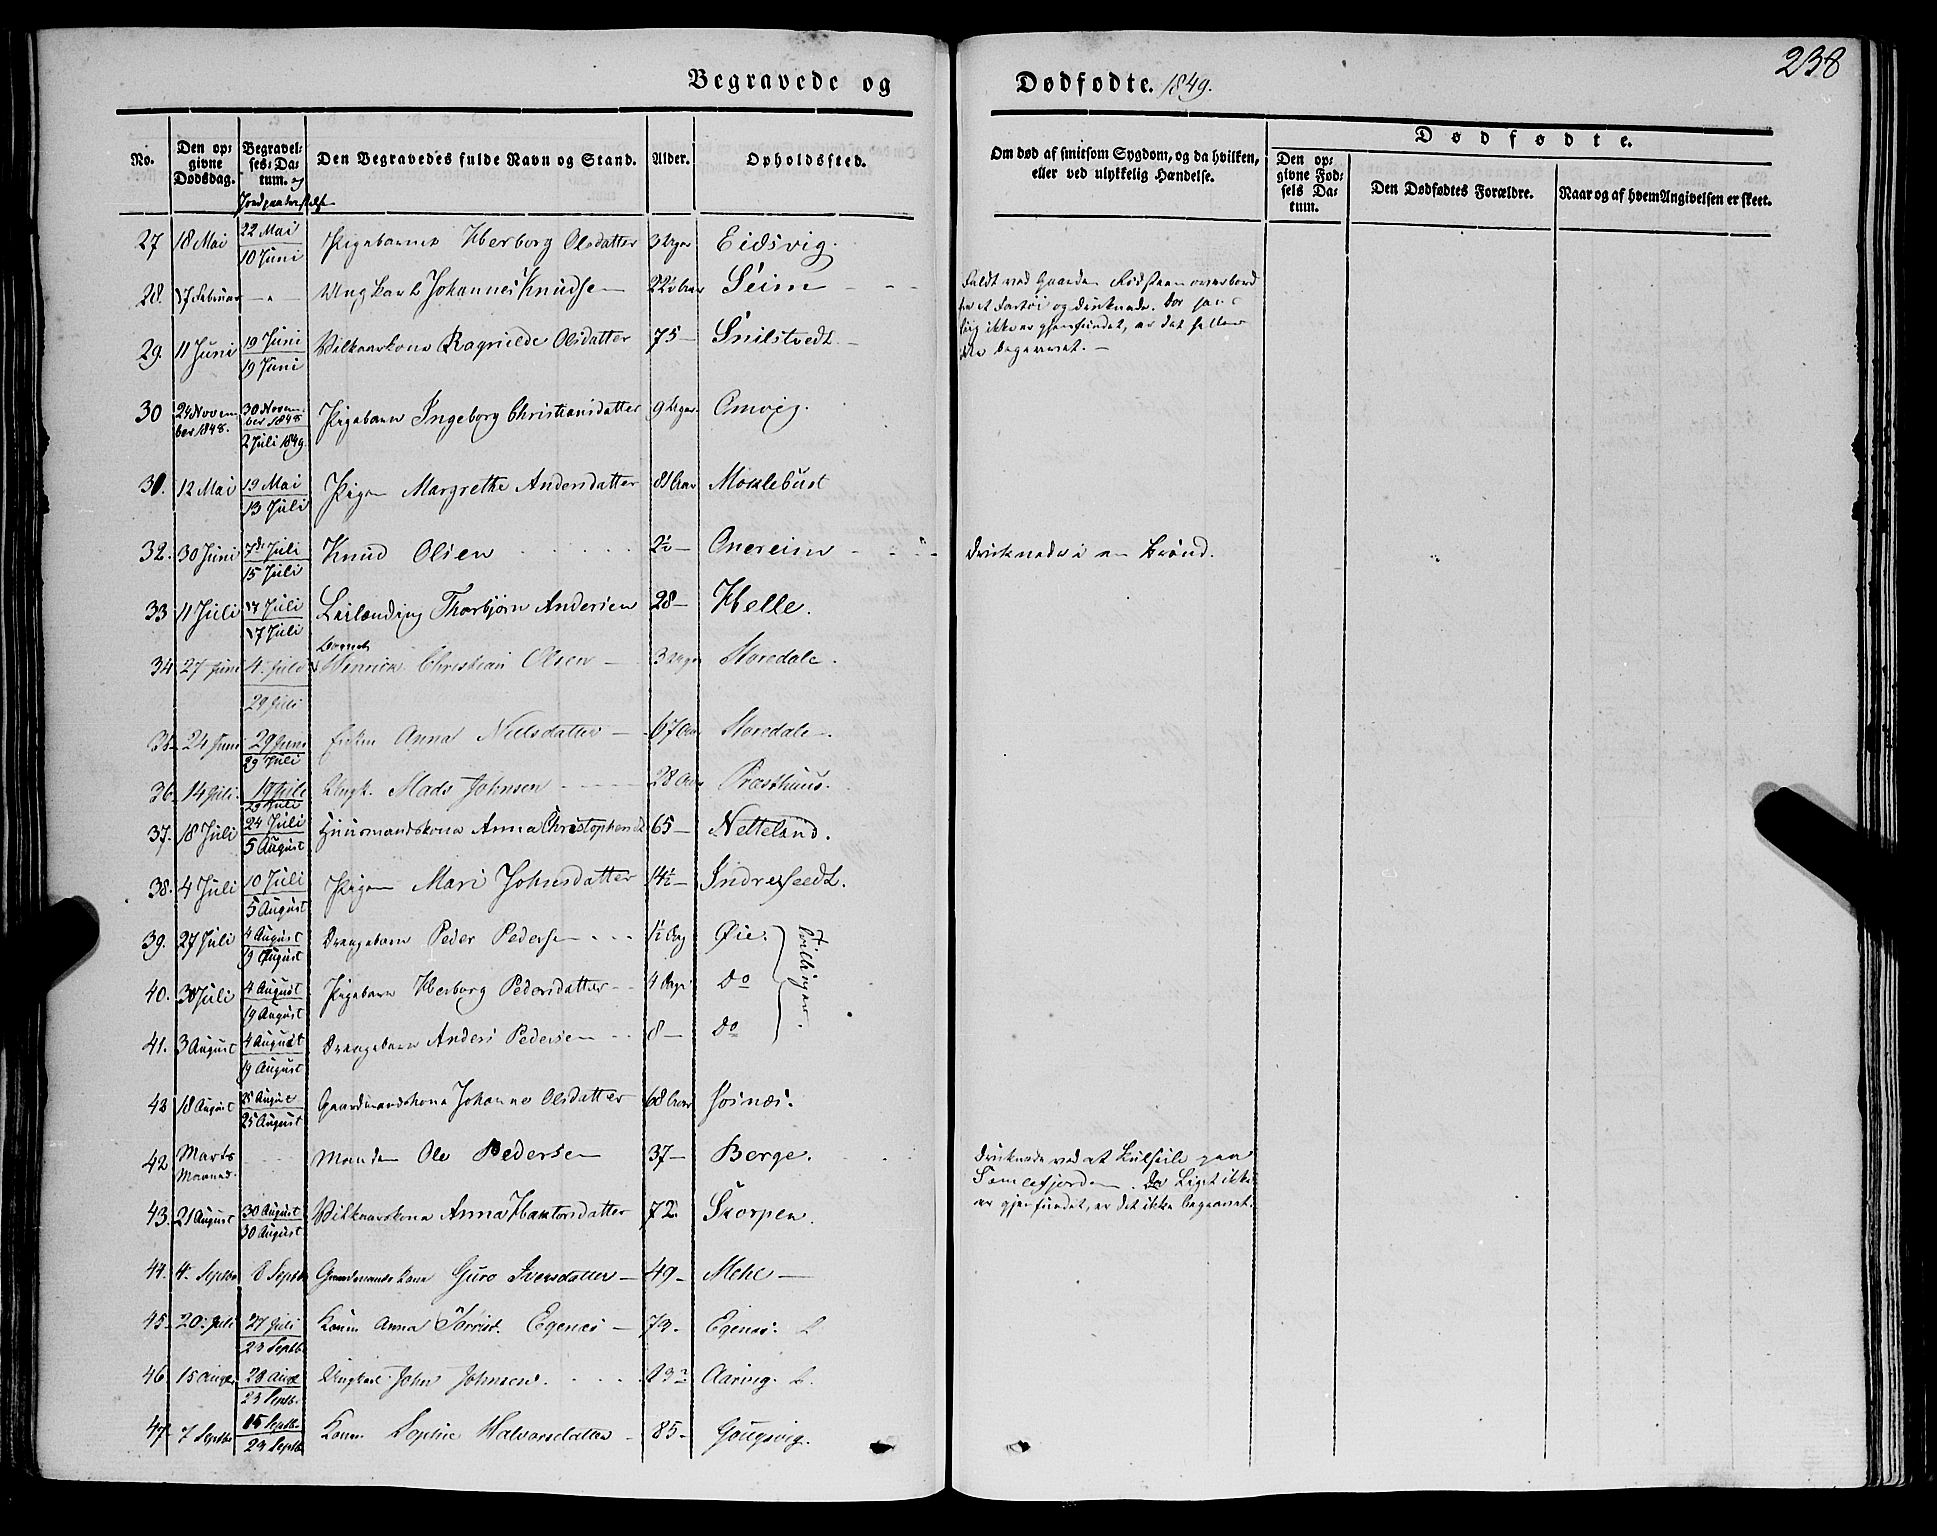 238
Begravede og Dødfødte. 1849.
No.
Den opgivne Dødsdag.
Begravelses-Datum. og Jordpaakastelse
Den Begravedes fulde Navn og Stand.
Alder.
Opholdssted.
Om død af smitsom Sygdom, og da hvilken, eller ved ulykkelig Hændelse.
Dødfødte.
Den opgivne Fødsels Datum.
Den Dødfødtes Forældre.
Naar og af hvem Angivelsen er skeet.
27 18 Mai 22 Mai 10 Juni Pigebarnet Herborg Olsdatter 3 Uger Eidsvig.
28. 17 Februar - " - Ungkarl Johannes Knudsen 22½ Aar Seim - - - Faldt ved Gaarden overbord
fra et Fartøi og druknede. Da
Liig ikke er gjenfundet, er det heller
ikke begravet. -
29. 11 Juni 19 Juni 19 Juni Vilkaarskone Ragnilde Olsdatter 75 - Snilstvedt -
30 24 November 1848. 30 November 1848 2 Juli 1849. Pigebarn Ingeborg Christiansdatter 9 Uger Omvig.
31. 12 Mai 19 Mai 13 Juli Pigen Margrethe Andersdatter Aar Moklebust
32. 30 Juni 7de Juli 15 Juli Knud Olsen 2½ - Onereim - " - druknede i en Brønd.
33 11 Juli 17 Juli 17 Juli Leilænding Thorbjørn Andersen 28 - Helle.
34 27 Juni 4. Juli 29 Juli Barnet Henrick Christian Olsen - 3 Uger Storedale.
35 24 Juni 29 Juni 29 Juli Enken Anna Nillsdatter - 67 Aar Storedale.
36. 14 Juli. 19 Juli 29 Juli Ungk. Mads Johnsen 28 Aar Præsthuus.
37. 18 Juli 24 Juli 5 August Huusmandskone Anna Christophersd. 65 - Netteland.
38. 4 Juli 10 Juli 5 August Pigen Mari Johnsdatter 14½ - Indreseedt.
39. 27 Juli 4 August 19 August Drengebarn Peder Pedersen 1½ Dag Øie. Tvillinger.
40. 30 Juli 4 August 19 August Pigebarn Herborg Pedersdatter 4 Dage Do
41. 3 August 4 August 19 August Drengebarn Anders Pedersen 8 - Do
42 18 August 25 August 25 August Gaardmandskone Johanne Olsdatter 68 Aar Hosnæs.
42 Marts Maaned. Manden Ole Pedersen 37 - Berge. druknede ved et Kulseile paa
. Da Liget ikke
er gjenfundet, er det ikke begravet.
43. 21 August 30 August 30 August Vilkaarskone Anna Haktorsdatter 72. Skorpen.
44. 4. Septbr 8 Septbr Gaardmands Kone Guro Iversdatter - 49 - Mehl -
45. 20. Juli 27 Juli 23 Septb. Konen Anna Egenæs - 73. Egenæs. L
46. 15 Aug. 23 Aug 23 Septb. Ungkarl John Johnsen. Aarvig. L.
47. 7 Septbr 15 Septbr. 23 Septb Konen Sophie Halvorsdatter - 85 - Gougsvig.